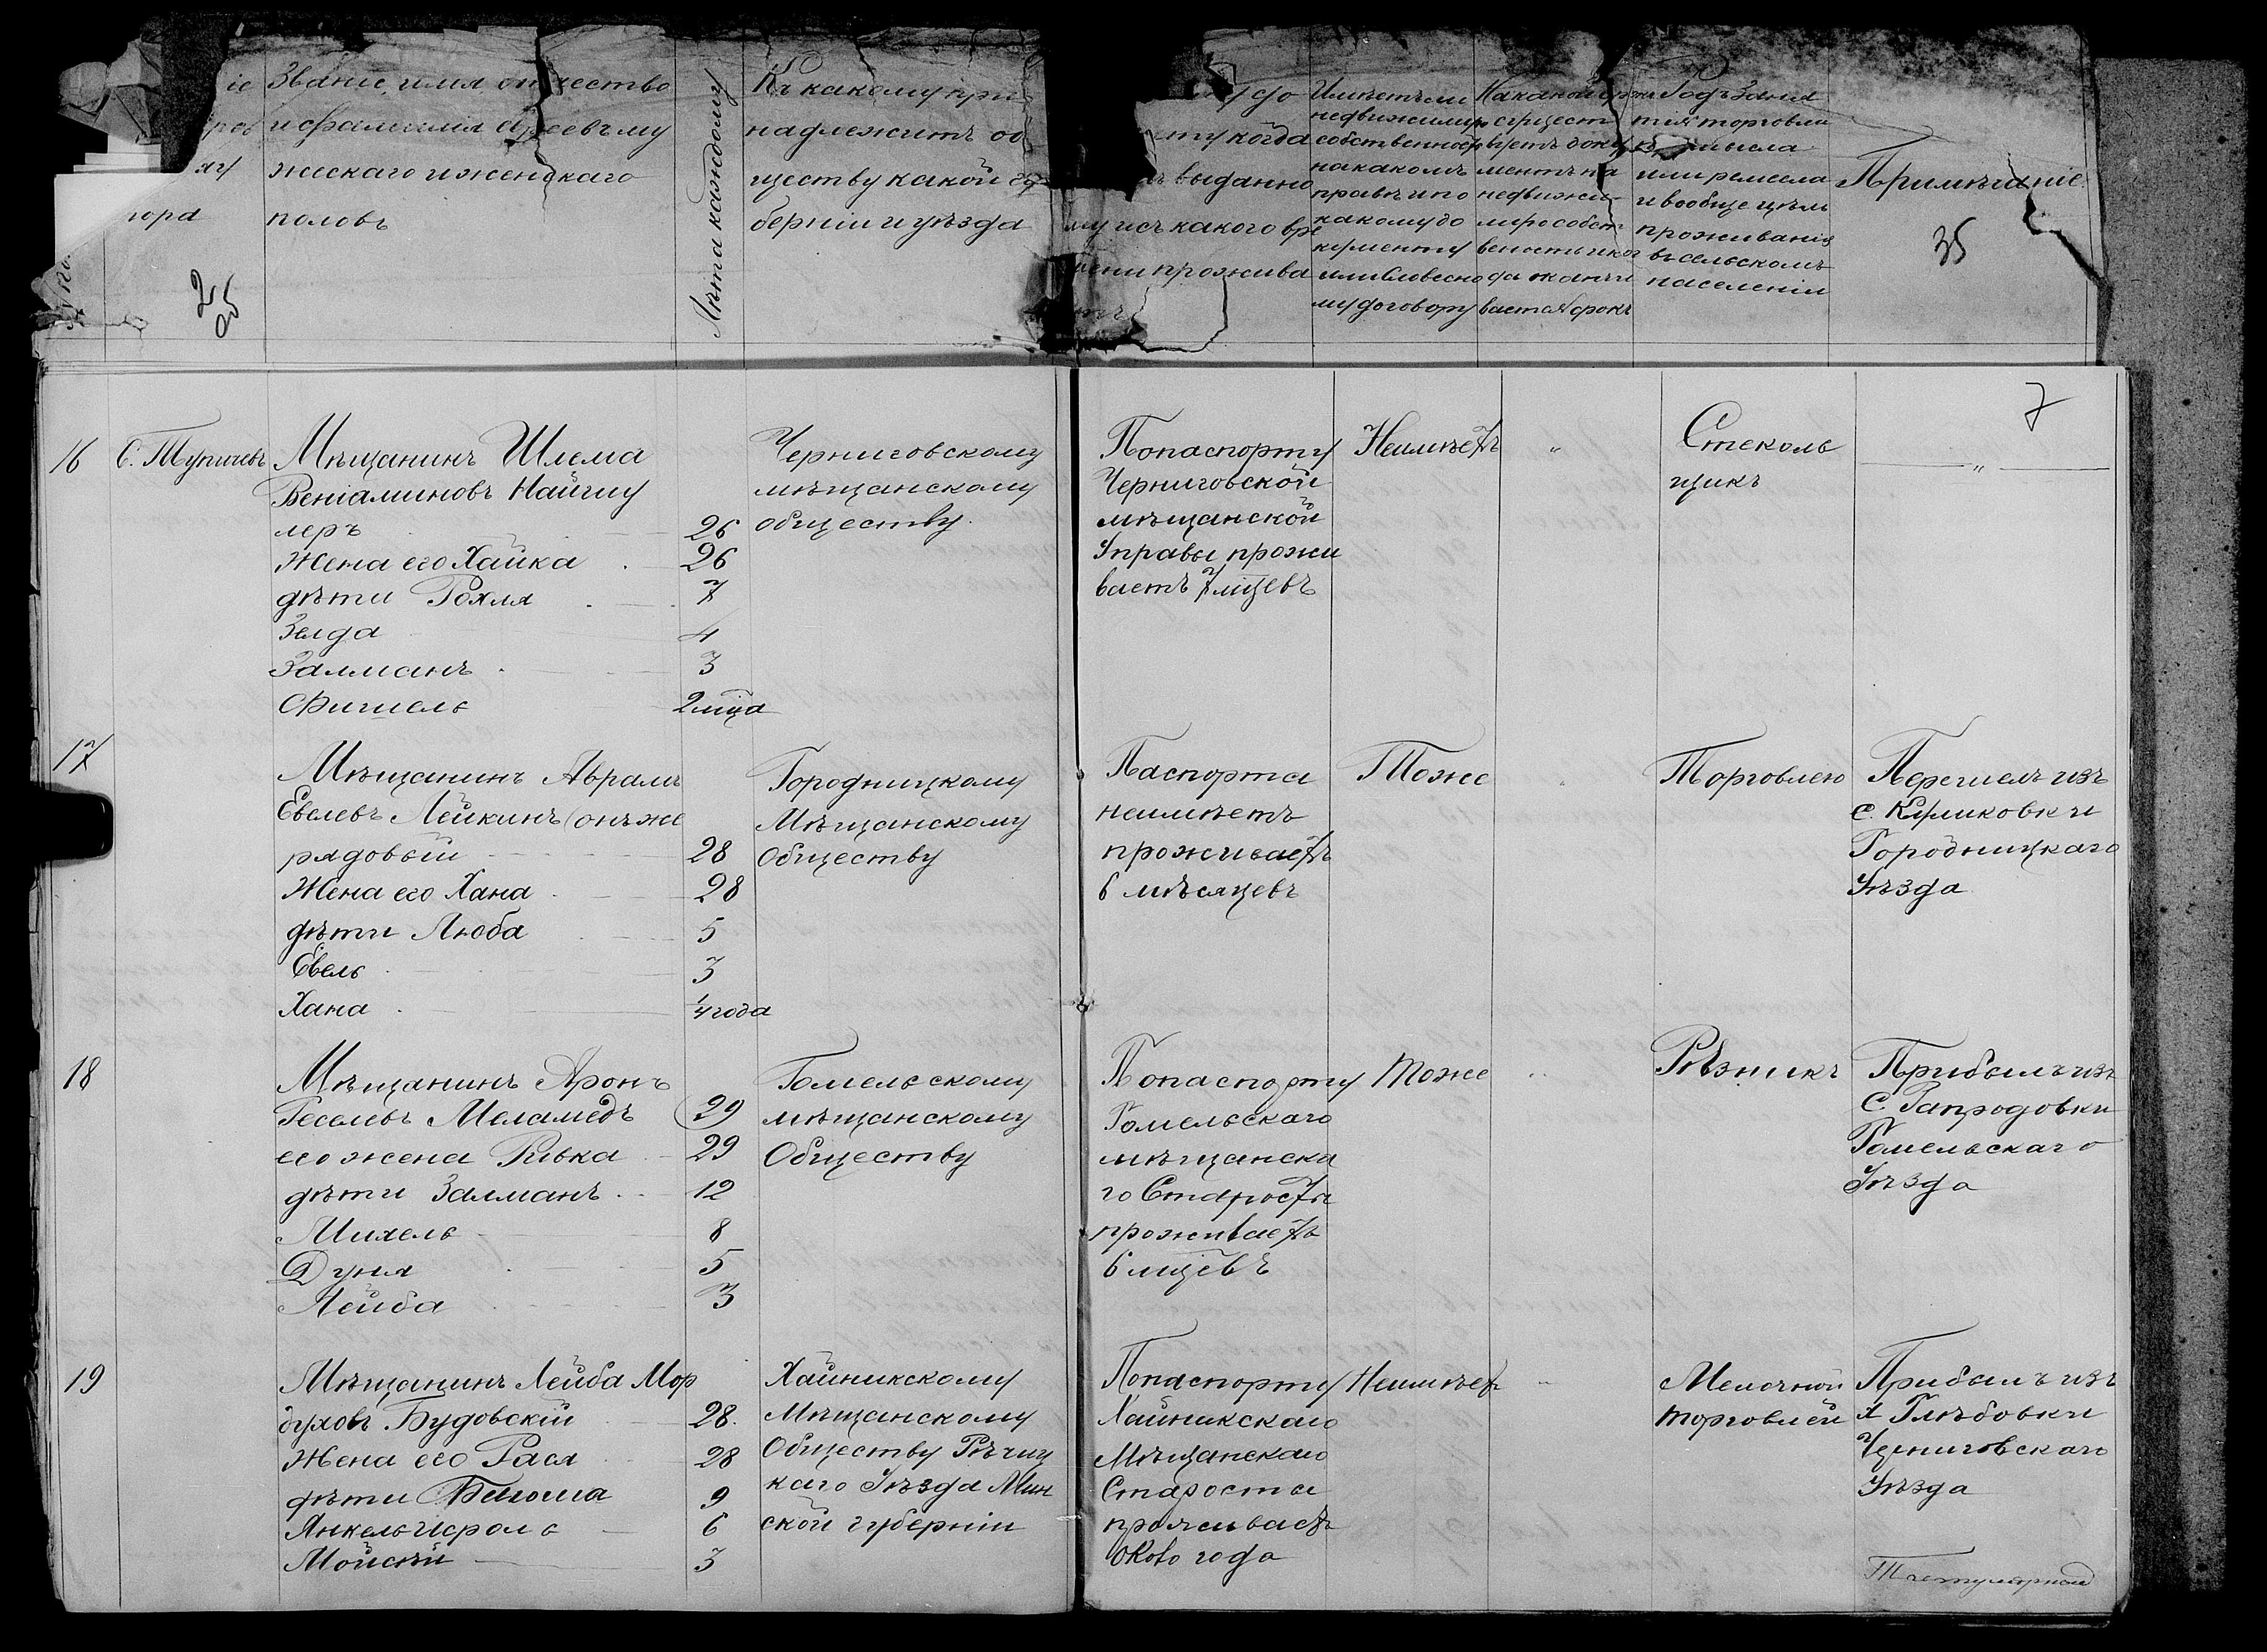 Званіе, имя отчество
и фамилія евреевъ му
жескаго и женскаго
половъ
Лѣта каждому
Къ какому при
надлежитъ об
ществу какой гу
берніи и уѣзда
когда
выданно
му и съ какого вре
мени прожива
етъ
Имѣетъ ли
недвижимую
собственность
на какомъ
правѣ и по
какому до
кументу
или словесно
му договору
недвижи
мую собст
венность и ког
да оканчи
вается срокъ
Родъ заня
тія торговли
промысла
или ремесла
и вообще цѣль
проживанія
въ сельскомъ
населеніи
Примѣчаніе
35
7
16
С. Тупичевъ
Мѣщанинъ Шлема
Веніаминовъ Найгиу
леръ 26
Жена его Хайка 26
дѣти Рохля 7
Зелда 4
Залманъ 3
Фишель 2 мца
Черниговскому
мѣщанскому
обществу.
По паспорту
Черниговской
мѣщанской
Управы прожи
ваетъ 7 мцевъ
Неимѣетъ
"
Стеколь
щикъ
"
17
Мѣщанинъ Абрамъ
Евелевъ Лейкинъ (онъ же
рядовый 28
Жена его Хана 28
дѣти Люба 5
Евель 3
Хана 1/4 года
Городницкому
Мѣщанскому
Обществу
Паспорта
неимѣетъ
проживаетъ
6 мѣсяцевъ
Тоже
Торговлею
Перешелъ изъ
с. Куликовки
Городницкаго
Уѣзда
18
Мѣщанинъ Аронъ
Геселевъ Меламедъ 29
его жена Ривка 29
дѣти Залманъ 12
Михель 8
Дуня 5
Лейба 3
Гомельскому
мѣщанскому
Обществу
По паспорту
Гомельскаго
мѣщанска
го Старосты
проживаетъ
6 мцевъ
Тоже
"
Рѣзникъ
Прибылъ изъ
С.
Гомельскаго
Уѣзда
19
Мѣщанинъ Лейба Мор
духовъ Будовскій 28.
Жена его Рася 28
дѣти 9
Янкель Исроль 6
Мойсѣй 3
Хайникскому
Мѣщанскому
Обществу Рѣчиц
каго Уѣзда Мин
ской губерніи
По паспорту
Хайникскаго
Мѣщанскаго
Старосты
проживаетъ
около года
Неимѣетъ
"
Мелочной
торговлей
Прибылъ изъ
х Глѣбовки
Черниговскаго
Уѣзда